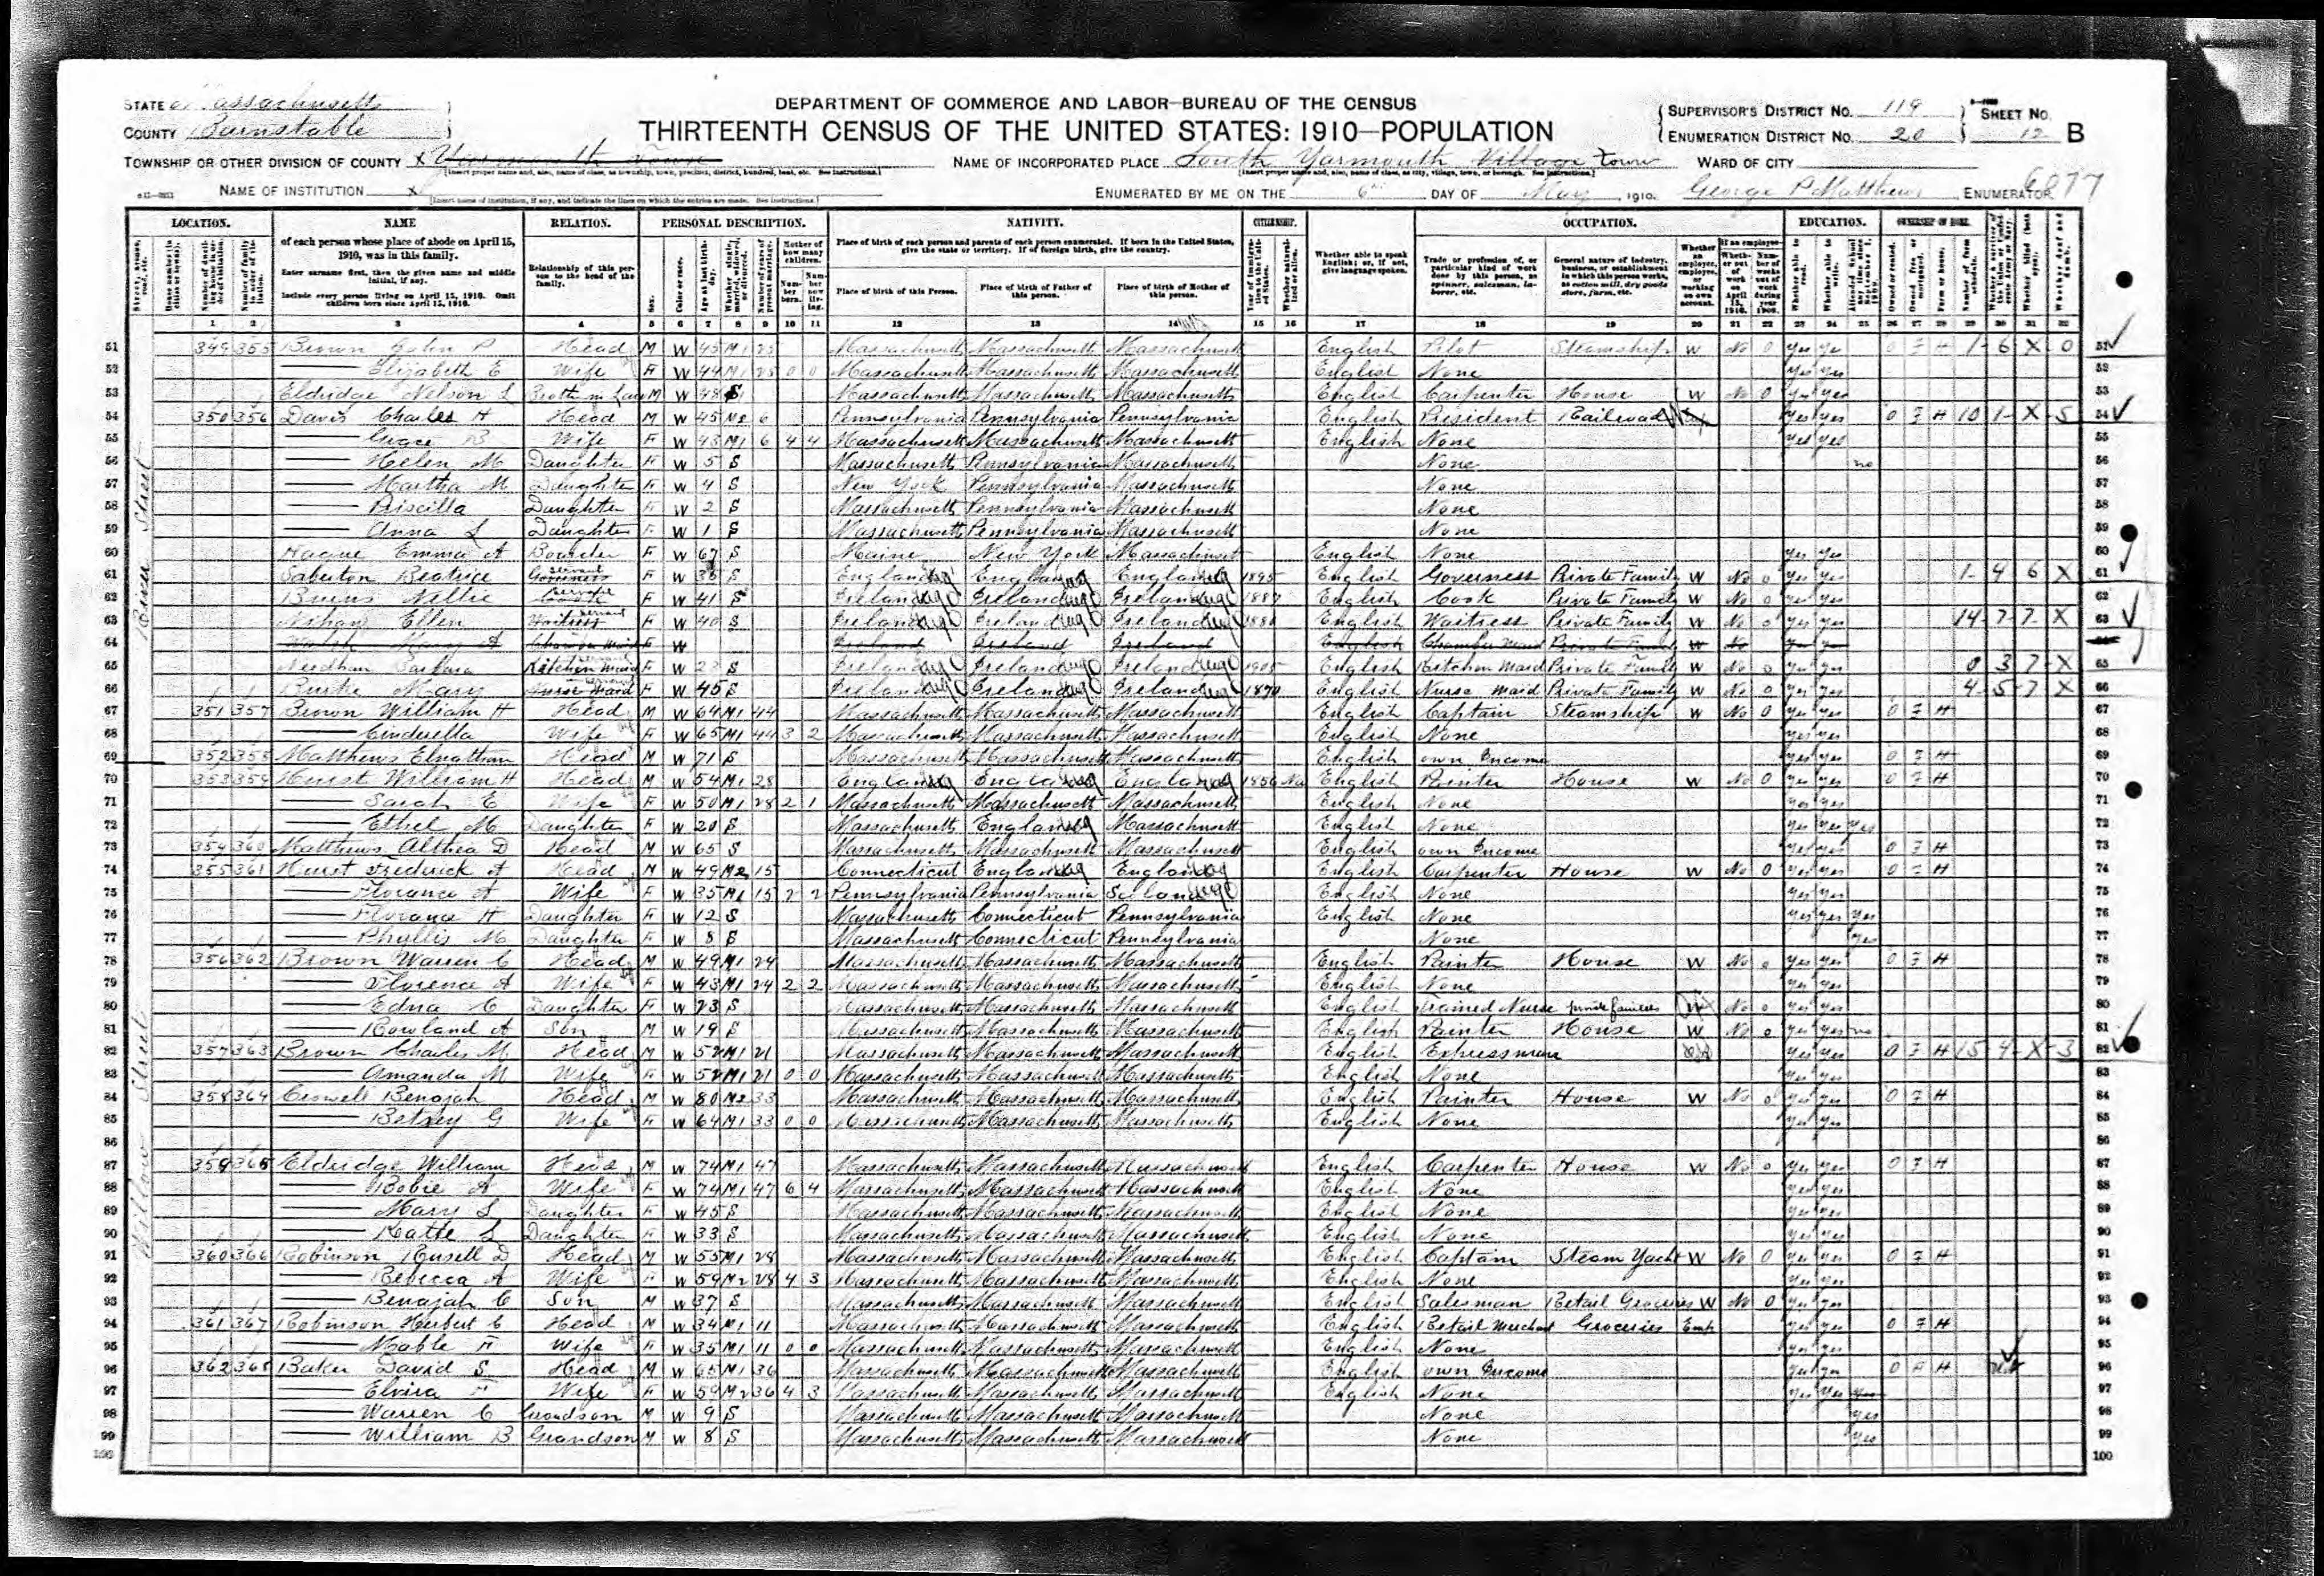 STATE Massachusetts
COUNTY Barnstable
DEPARTMENT OF COMMERCE AND LABOR—BUREAU OF THE CENSUS
THIRTEENTH CENSUS OF THE UNITED STATES: 1910—POPULATION
SUPERVISOR'S DISTRICT No. 119 SHEET No.
ENUMERATION DISTRICT No. 20 12 B
TOWNSHIP OR OTHER DIVISION OF COUNTY x Yarmouth Town
NAME OF INCORPORATED PLACE South Yarmouth Village town WARD OF CITY
NAME OF INSTITUTION x
ENUMERATED BY ME ON THE 6th DAY OF May 1910. George P Matthews ENUMERATOR 6077
LOCATION. NAME RELATION. PERSONAL DESCRIPTION. NATIVITY. CITIZENSHIP. OCCUPATION. EDUCATION. OWNERSHIP OF HOME.
of each person whose place of abode on April 15, 1910, was in this family.
Enter surname first, then the given name and middle initial, if any.
Include every person living on April 15, 1910. Omit children born since April 15, 1910.
Relationship of this person to the head of the family.
Place of birth of each person and parents of each person enumerated. If born in the United States, give the state or territory. If of foreign birth, give the country.
Place of birth of this Person. Place of birth of Father of this person. Place of birth of Mother of this person.
Whether able to speak English; or, if not, give language spoken.
Trade or profession of, or particular kind of work done by this person, as spinner, salesman, laborer, etc.
General nature of industry, business, or establishment in which this person works, as cotton mill, dry goods store, farm, etc.
1 2 3 4 5 6 7 8 9 10 11 12 13 14 15 16 17 18 19 20 21 22 23 24 25 26 27 28 29 30 31 32
River Street
51 349 355 Brown John P Head M W 45 M1 25 Massachusetts Massachusetts Massachusetts English Pilot Steamship W No 0 Yes Yes O F H 1-6 X 0 51
52 Elizabeth E Wife F W 44 M1 25 0 0 Massachusetts Massachusetts Massachusetts English None Yes Yes 52
53 Eldridge Nelson L Broth in Law M W 48 S Massachusetts Massachusetts Massachusetts English Carpenter House W No 0 Yes Yes 53
54 350 356 Davis Charles H Head M W 45 M2 6 Pennsylvania Pennsylvania Pennsylvania English President Railroad Yes Yes O F H 10 1-X-5 54
55 Grace B Wife F W 43 M1 6 4 4 Massachusetts Massachusetts Massachusetts English None Yes Yes 55
56 Helen M Daughter F W 5 S Massachusetts Pennsylvania Massachusetts None no 56
57 Martha M Daughter F W 4 S New York Pennsylvania Massachusetts None 57
58 Priscilla Daughter F W 2 S Massachusetts Pennsylvania Massachusetts None 58
59 Anna L Daughter F W 1 S Massachusetts Pennsylvania Massachusetts None 59
60 Hague Emma A Boarder F W 67 S Maine New York Massachusetts English None Yes Yes 60
61 Saberton Beatrice Governess servant F W 36 S England England England 1895 English Governess Private Family W No 0 Yes Yes 1-4 6 X 61
62 Burns Nellie servant F W 41 S Ireland Ireland Ireland 1887 English Cook Private Family W No 0 Yes Yes 62
63 Ellen Waitress servant F W 40 S Ireland Ireland Ireland English Waitress Private Family W No 0 Yes Yes 14-7-7-X 63
64 Walsh Mary A Chamber Maid F W Ireland Ireland Ireland English Chamber Maid Private Family W No Yes Yes 64
65 Needham Barbara Kitchen Maid servant F W S Ireland Ireland Ireland 1905 English Kitchen Maid Private Family W No 0 Yes Yes 0 3 7-X 65
66 Burke Mary Nurse Maid servant F W 45 S Ireland Ireland Ireland 1870 English Nurse Maid Private Family W No 0 Yes Yes 4-5-7 X 66
67 351 357 Brown William H Head M W 64 M1 44 Massachusetts Massachusetts Massachusetts English Captain Steamship W No 0 Yes Yes O F H 67
68 Cinderella Wife F W 65 M1 44 3 2 Massachusetts Massachusetts Massachusetts English None Yes Yes 68
69 352 358 Matthews Elnathan Head M W 71 S Massachusetts Massachusetts Massachusetts English own Income Yes Yes O F H 69
70 353 359 Hurst William H Head M W 54 M1 28 England England England 1856 Na English Painter House W No 0 Yes Yes O F H 70
71 Sarah E Wife F W 50 M1 28 2 1 Massachusetts Massachusetts Massachusetts English None Yes Yes 71
72 Ethel M Daughter F W 20 S Massachusetts England Massachusetts English None Yes Yes Yes 72
73 354 360 Matthews Althea D Head W 65 S Massachusetts Massachusetts Massachusetts English own Income Yes Yes O F H 73
74 355 361 Hurst Frederick A Head M W 49 M2 15 Connecticut England England English Carpenter House W No 0 Yes Yes O F H 74
75 Florance A Wife F W 35 M1 15 2 2 Pennsylvania Pennsylvania Scotland English None Yes Yes 75
76 Florance H Daughter F W 12 S Massachusetts Connecticut Pennsylvania English None Yes Yes Yes 76
77 Phyllis M Daughter F W 8 S Massachusetts Connecticut Pennsylvania None Yes 77
78 356 362 Brown Warren C Head M W 49 M1 24 Massachusetts Massachusetts Massachusetts English Painter House W No 0 Yes Yes O F H 78
79 Florence A Wife F W 43 M1 24 2 2 Massachusetts Massachusetts Massachusetts English None Yes Yes 79
80 Edna C Daughter F W 23 S Massachusetts Massachusetts Massachusetts English Trained Nurse private families W No 0 Yes Yes 80
81 Rowland A Son M W 19 S Massachusetts Massachusetts Massachusetts English Painter House W No 0 Yes Yes no 81
Willow Street
82 357 363 Brown Charles M Head M W 52 M1 21 Massachusetts Massachusetts Massachusetts English Expressman Yes Yes O F H 15-4-X-3 82
83 Amanda M Wife F W 52 M1 21 0 0 Massachusetts Massachusetts Massachusetts English None Yes Yes 83
84 358 364 Crowell Benajah Head M W 80 M2 33 Massachusetts Massachusetts Massachusetts English Painter House W No 0 Yes Yes O F H 84
85 Betsey G Wife F W 64 M1 33 0 0 Massachusetts Massachusetts Massachusetts English None Yes Yes 85
86 86
87 359 365 Eldridge William Head M W 74 M1 47 Massachusetts Massachusetts Massachusetts English Carpenter House W No 0 Yes Yes O F H 87
88 Bobie A Wife F W 74 M1 47 6 4 Massachusetts Massachusetts Massachusetts English None Yes Yes 88
89 Mary L Daughter F W 45 S Massachusetts Massachusetts Massachusetts English None Yes Yes 89
90 Katie L Daughter F W 33 S Massachusetts Massachusetts Massachusetts English None Yes Yes 90
91 360 366 Robinson Rusell D Head M W 55 M1 28 Massachusetts Massachusetts Massachusetts English Captain Steam Yacht W No 0 Yes Yes O F H 91
92 Rebecca A Wife F W 59 M2 28 4 3 Massachusetts Massachusetts Massachusetts English None Yes Yes 92
93 Benajah C Son M W 37 S Massachusetts Massachusetts Massachusetts English Salesman Retail Groceries W No 0 Yes Yes 93
94 361 367 Robinson Herbert C Head M W 34 M1 11 Massachusetts Massachusetts Massachusetts English Retail Merchant Groceries Emp Yes Yes O F H 94
95 Mable F Wife F W 35 M1 11 0 0 Massachusetts Massachusetts Massachusetts English None Yes Yes 95
96 362 368 Baker David S Head M W 65 M1 36 Massachusetts Massachusetts Massachusetts English own Income Yes Yes O F H 96
97 Elvira F Wife F W 59 M2 36 4 3 Massachusetts Massachusetts Massachusetts English None Yes Yes 97
98 Warren C Grandson M W 9 S Massachusetts Massachusetts Massachusetts None Yes 98
99 William B Grandson M W 8 S Massachusetts Massachusetts Massachusetts None Yes 99
100 100